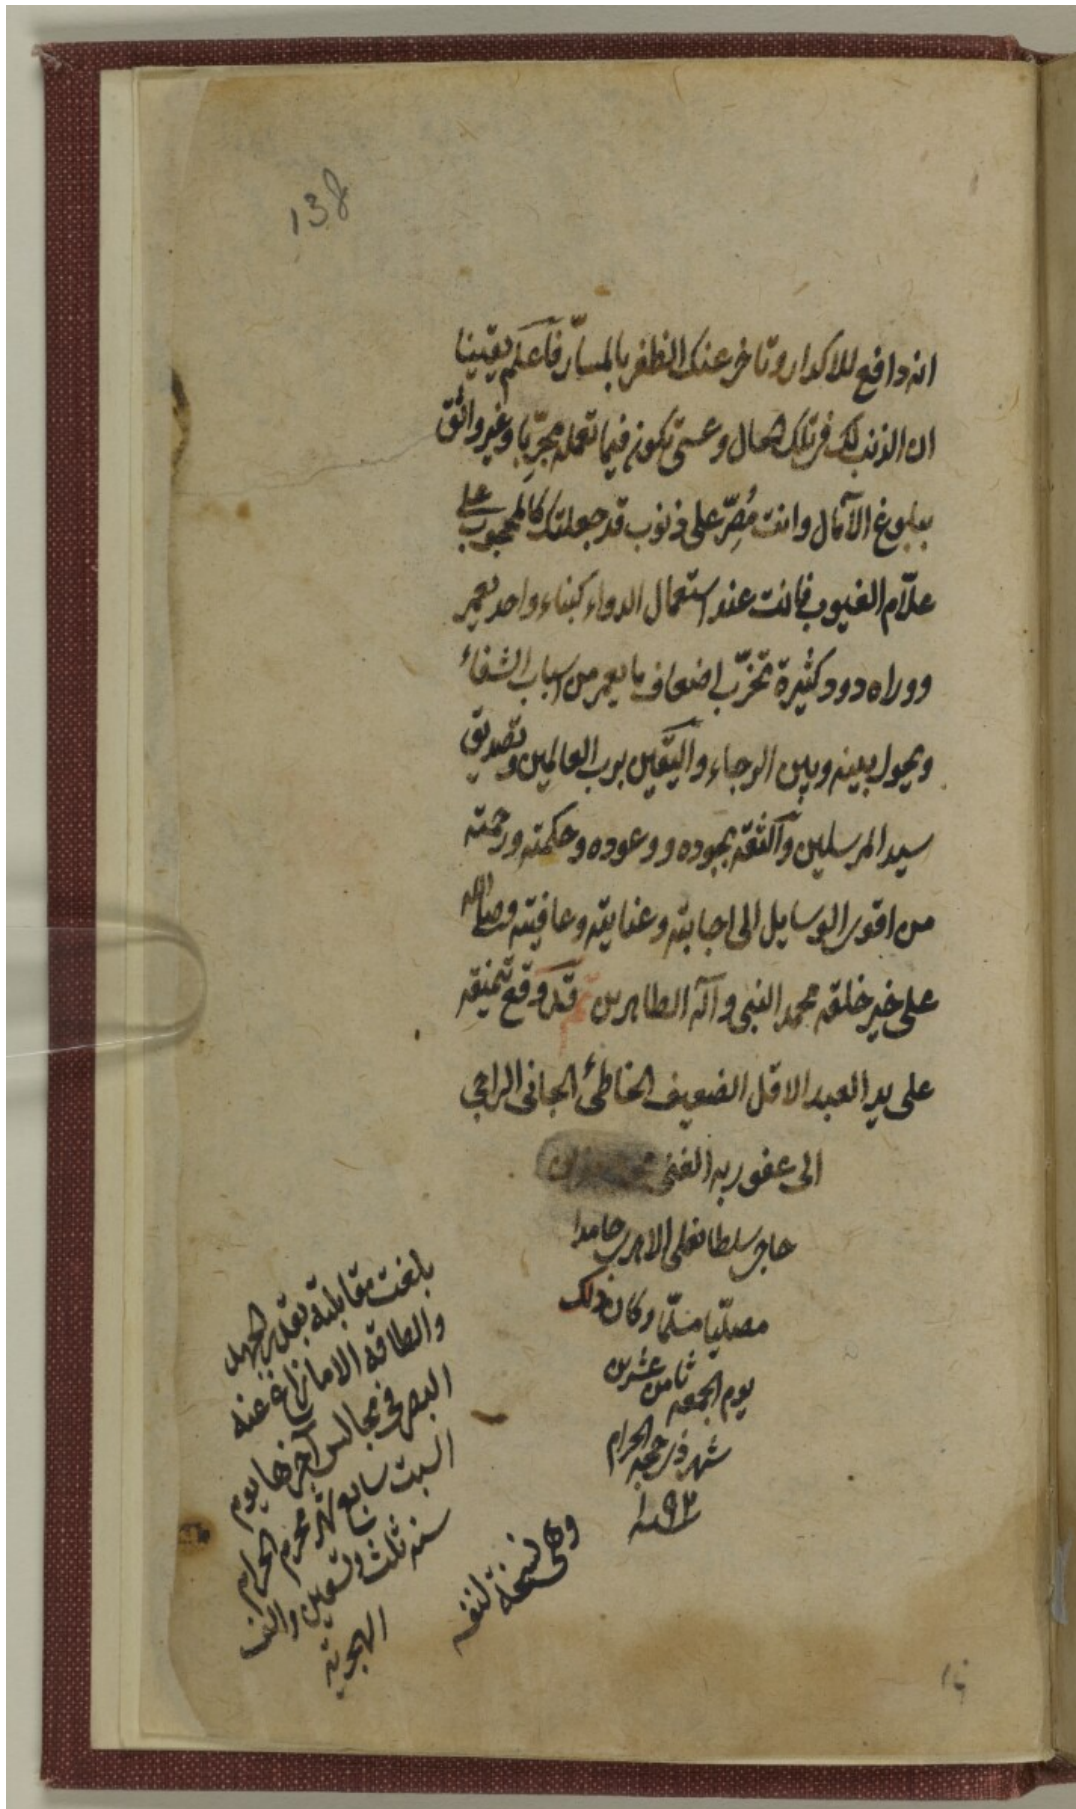 138
انه دافع للاكدار وتاخر عنك الظفر بالمسارّ فاعلم يقينا
ان الذنب لك في تلك الحال وعسى تكون فيما تعمله مجرّبا وغير واثق
ببلوغ الآمال وانت مُصِرّ على ذنوب قد جعلتك كالمحجوب على
علاّم الغيوب فانت عند استعمال الدواء كبناء واحد يعمر
ووراه دود كثيرة تخرّب اضعاف ما يعمر من اسباب الشفاء
ويحول بينه وبين الرجاء واليقين برب العالمين وتصديق
سيد المرسلين والثقة بجوده ووعوده وحكمته ورحمته
من اقوى الوسايل الى اجابته وعنايته وعافيته وصلى الله
على خير خلقه محمد النبي وآله الطاهرين تم قد وقع تنميقه
على يد العبد الاقل الضعيف الخاطئ الجاني الراجي
الى عفو ربه الغني
حاجى سلطانعلى حامدا
مصلّيا مسلّما وكان ذلك
يوم الجمعه ثامن عشرين
شهر ذى حجه الحرام
١٠٩٢
بلغت مقابلة بقدر الجهد
والطاقة الا ما زاغ عنه
البصر في مجالس آخرها يوم
السبت سابع شهر محرم الحرام
سنه ثلث وتسعين والف
الهجرية
وهى نسخة لنفسه